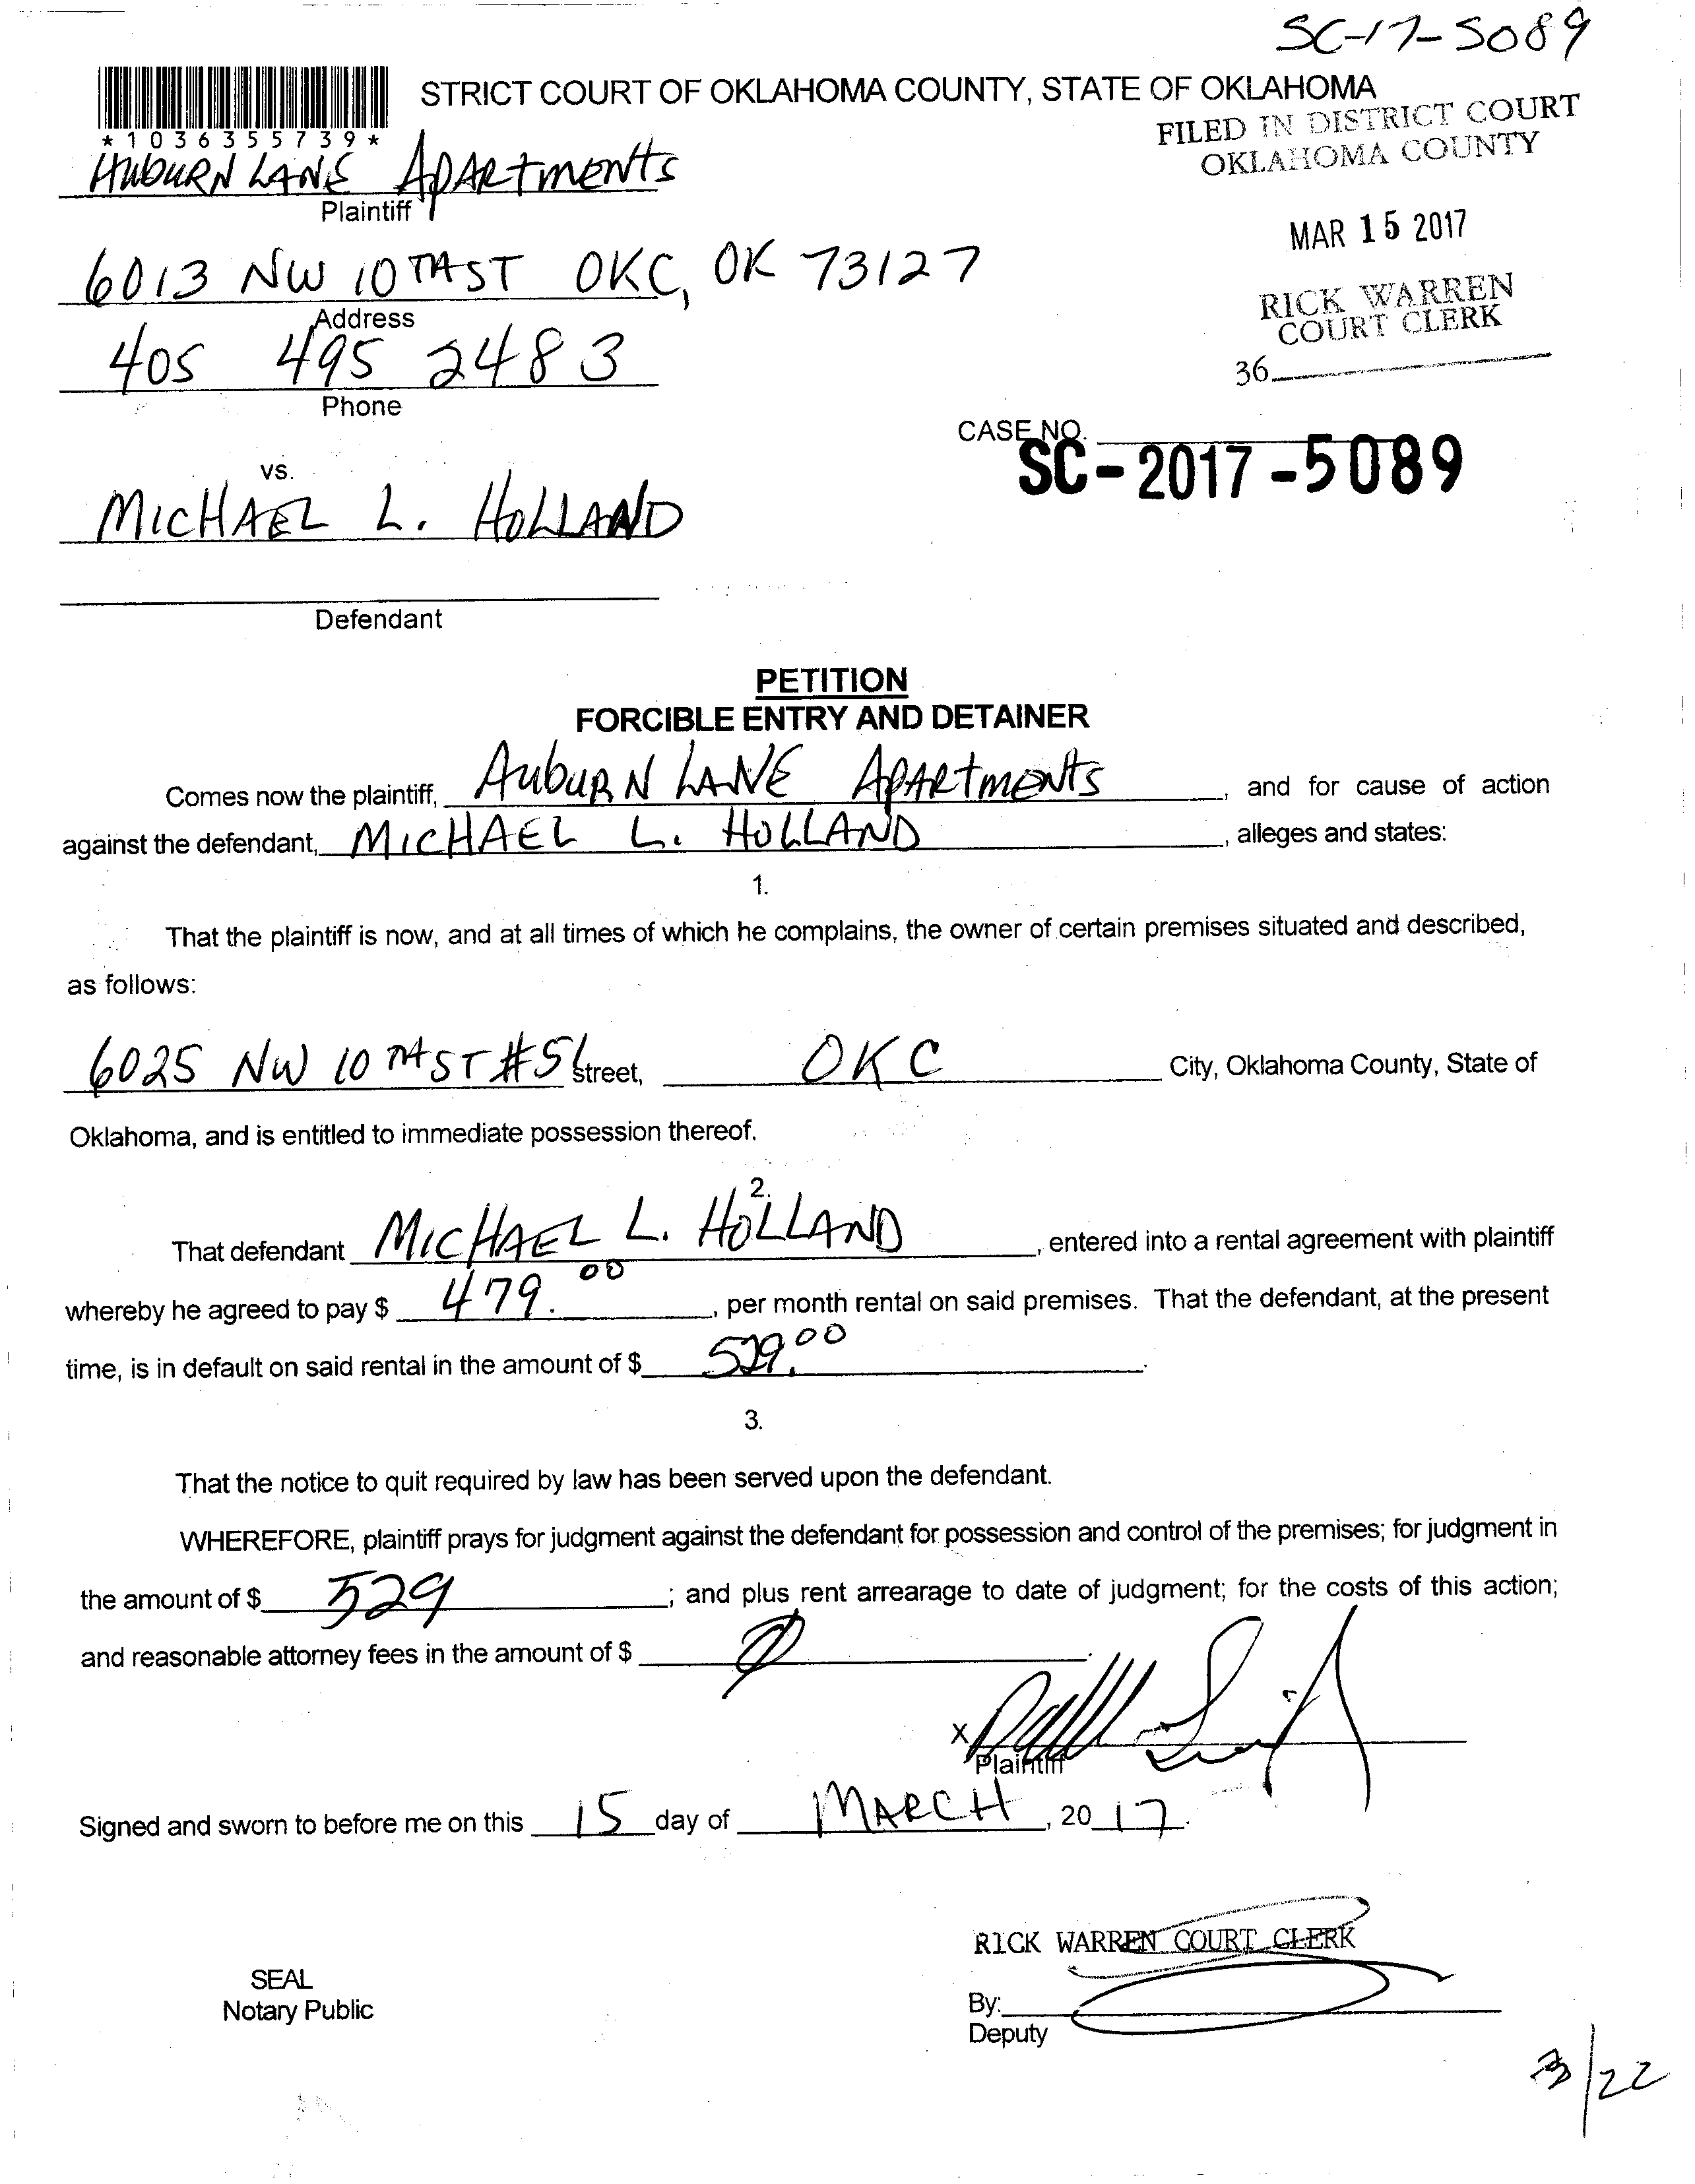 SC-17-5089
STRICT COURT OF OKLAHOMA COUNTY, STATE OF OKLAHOMA
*1036355739*
FILED IN DISTRICT COURT
OKLAHOMA COUNTY
AUBURN LANE APARTMENTS
Plaintiff
MAR 15 2017
6013 NW 10TH ST OKC, OK 73127
Address
RICK WARREN
COURT CLERK
405 495 2483
36
Phone
CASE NO.
SC-2017-5089
vs.
MICHAEL L. HOLLAND
Defendant
PETITION
FORCIBLE ENTRY AND DETAINER
Comes now the plaintiff, AUBURN LANE APARTMENTS, and for cause of action
against the defendant, MICHAEL L. HOLLAND, alleges and states:
1.
That the plaintiff is now, and at all times of which he complains, the owner of certain premises situated and described,
as follows:
6025 NW 10TH ST # Street, OKC City, Oklahoma County, State of
Oklahoma, and is entitled to immediate possession thereof.
2.
That defendant MICHAEL L. HOLLAND, entered into a rental agreement with plaintiff
whereby he agreed to pay $ 479.00, per month rental on said premises. That the defendant, at the present
time, is in default on said rental in the amount of $ 529.00.
3.
That the notice to quit required by law has been served upon the defendant.
WHEREFORE, plaintiff prays for judgment against the defendant for possession and control of the premises; for judgment in
the amount of $ 529; and plus rent arrearage to date of judgment; for the costs of this action;
and reasonable attorney fees in the amount of $ Ø.
X
Plaintiff
Signed and sworn to before me on this 15 day of MARCH, 2017.
RICK WARREN COURT CLERK
SEAL
Notary Public
By:
Deputy
3/22